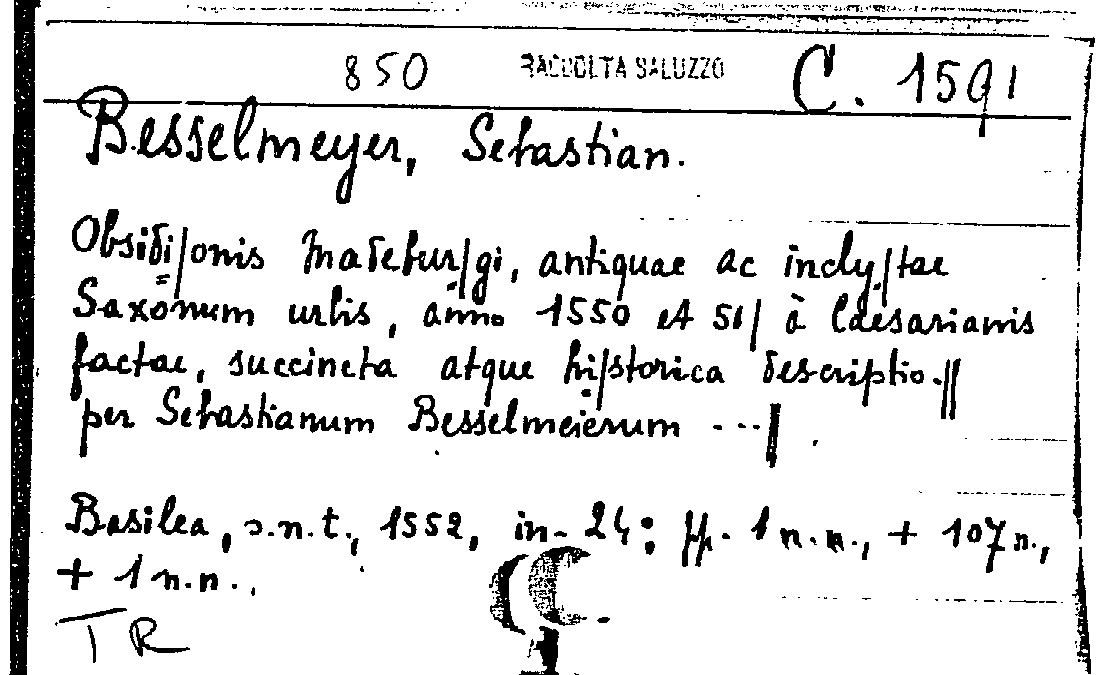 850 RACCOLTA SALUZZO C. 1591
Besselmeyer, Sebastian.
Obsidi/onis Madebur/gi, antiquae ac incly/tae
Saxonum urbis, anno 1550 et 51/ à Caesarianis
factae, succincta atque hi/storica descriptio.//
per Sebastianum Besselmeierum ---/
Basilea, s.n.t., 1552, in-24; pp. 1 n.n., + 107 n.,
+ 1 n.n..
TR